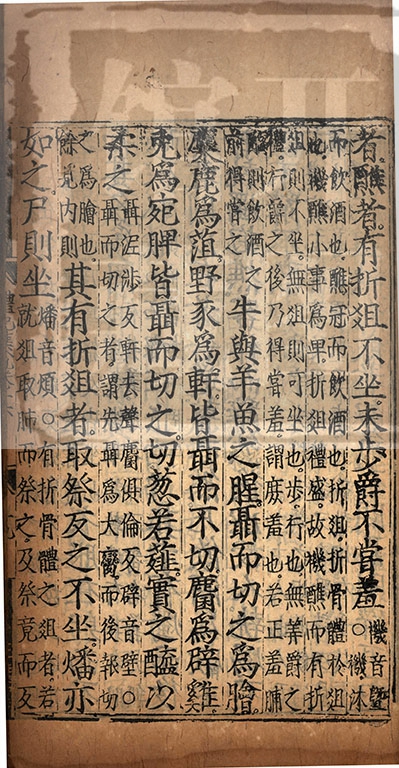 者醮者有折俎不坐未步爵不嘗羞
○禨音曁
禨沐
而飲酒也醮冠而飲酒也折俎折骨體於俎
也禨醮小事為卑折俎禮盛故禨醮而有折
俎則不坐無俎則可坐也步行也無筭爵之
禮行爵之後乃得嘗羞謂庶羞也若正羞脯
醢則飲酒之
前得嘗之
牛與羊魚之腥聶而切之為膾
麋鹿為菹野豕為軒皆聶而不切麕為辟雞
兔為宛脾皆聶而切之切葱若薤實之醯以
柔之
聶泥涉反軒去聲麕俱倫反辟音壁○
聶而切之者謂先聶為大臠而後報切
之為膾也
餘見內則
其有折俎者取祭反之不坐燔亦
如之尸則坐
燔音煩○有折骨體之俎者若
就俎取肺而祭之及祭竟而反